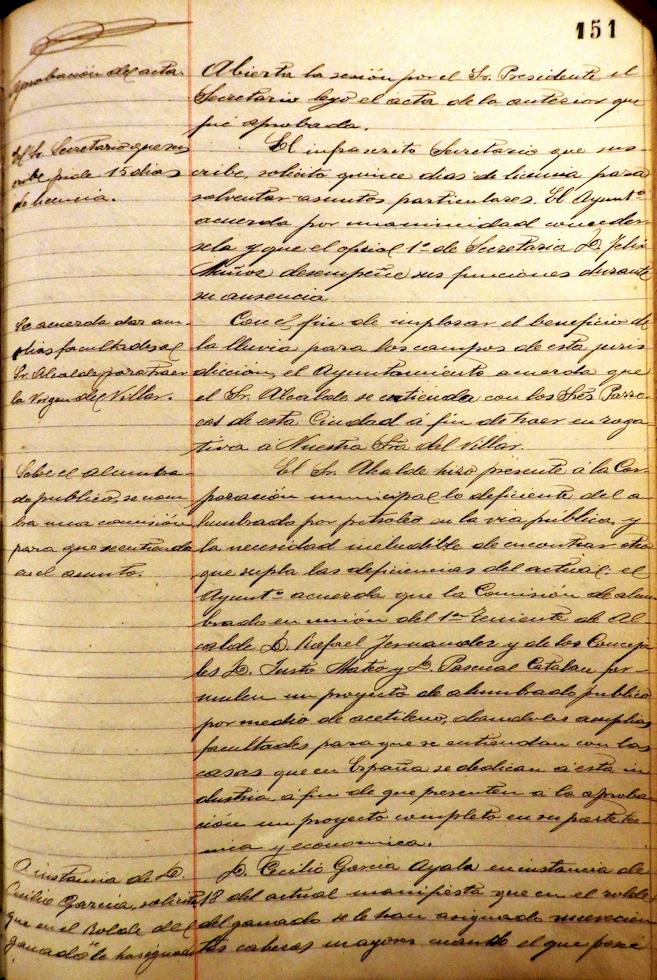 151
Aprobación del acta.
Abierta la sesión por el Sr. Presidente el
Secretario leyó el acta de la anterior que
fué aprobada.
El Sr. Secretario que sus
cribe pide 15 dias
de licencia.
El infrascrito Secretario que sus
cribe, solicita quince dias de licencia para
solventar asuntos particulares. El Ayuntº
acuerda por unanimidad conceder
sela y que el oficial 1º de Secretaria D. Felix
Muñoz desempeñe sus funciones durante
su ausencia
Se acuerda dar am-
plias facultades al
Sr. Alcalde para traer
la Virgen del Villar.
Con el fin de implorar el beneficio de
la lluvia para los campos de esta juris
dicción, el Ayuntamiento acuerda que
el Sr. Alcalde se entienda con los Sres Parro-
cos de esta Ciudad á fin de traer en roga
tiva á Nuestra Sra del Villar.
Sobre el alumbra-
do publico, se nom
bra una comisión
para que se entienda
en el asunto.
El Sr. Alcalde hizo presente á la Cor
poración municipal lo deficiente del a
lumbrado por petroleo en la via pública, y
la necesidad ineludible de encontrar otro
que supla las deficiencias del actual: el
Ayuntº acuerda que la Comisión de alum
brado en unión del 1er Teniente de Al
calde D. Rafael Fernandez y de los Conceja
les D. Justo Mateo y D. Pascual Catalan for
mulen un proyecto de alumbrado publico
por medio de acetileno, dandoles amplias
facultades para que se entiendan con las
casas que en España se dedican á esta in
dustria á fin de que presenten á la aproba-
ción un proyecto completo en su parte téc
nica y economica.
A instancia de D.
Cecilio Garcia, solicita
que en el Rolde del
ganado se le ha asignado
D. Cecilio Garcia Ayala en instancia de
18 del actual manifiesta que en el rolde
del ganado se le han asignado nuevecien
tas cabezas mayores cuando el que posé